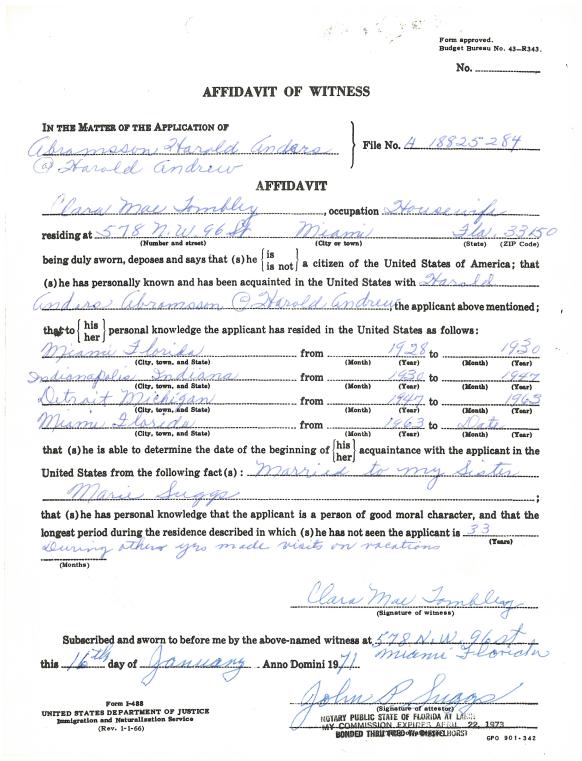 Form approved.
Budget Bureau No. 43—R343.
No.
AFFIDAVIT OF WITNESS
IN THE MATTER OF THE APPLICATION OF
Abramsson, Harold Anders
@ Harold Andrew
File No. A 18825284
AFFIDAVIT
Clara Mae Tombley, occupation Housewife
residing at 578 N.W. 96 St Miami Fla. 33150
(Number and street) (City or town) (State) (ZIP Code)
being duly sworn, deposes and says that (s)he { is / is not } a citizen of the United States of America; that
(s)he has personally known and has been acquainted in the United States with Harold
Anders Abramsson @ Harold Andrew, the applicant above mentioned;
that to { his / her } personal knowledge the applicant has resided in the United States as follows:
Miami Florida from 1928 to 1930
(City, town, and State) (Month) (Year) (Month) (Year)
Indianapolis Indiana from 1930 to 1947
(City, town, and State) (Month) (Year) (Month) (Year)
Detroit Michigan from 1947 to 1963
(City, town, and State) (Month) (Year) (Month) (Year)
Miami Florida from 1963 to Date
(City, town, and State) (Month) (Year) (Month) (Year)
that (s)he is able to determine the date of the beginning of { his / her } acquaintance with the applicant in the
United States from the following fact(s): Married to my Sister
Marie Suggs;
that (s)he has personal knowledge that the applicant is a person of good moral character, and that the
longest period during the residence described in which (s)he has not seen the applicant is 33
During others yrs made visits on vacations (Years)
(Months)
Clara Mae Tombley
(Signature of witness)
Subscribed and sworn to before me by the above-named witness at 578 N.W. 96 st.
Miami Florida
this 16th day of January Anno Domini 1971
John P Suggs
(Signature of attestor)
NOTARY PUBLIC STATE OF FLORIDA AT
MY COMMISSION EXPIRES APRIL 22, 1973
BONDED THRU FRED W. DIESTELHORST
Form I-488
UNITED STATES DEPARTMENT OF JUSTICE
Immigration and Naturalization Service
(Rev. 1-1-66)
GPO 901-342